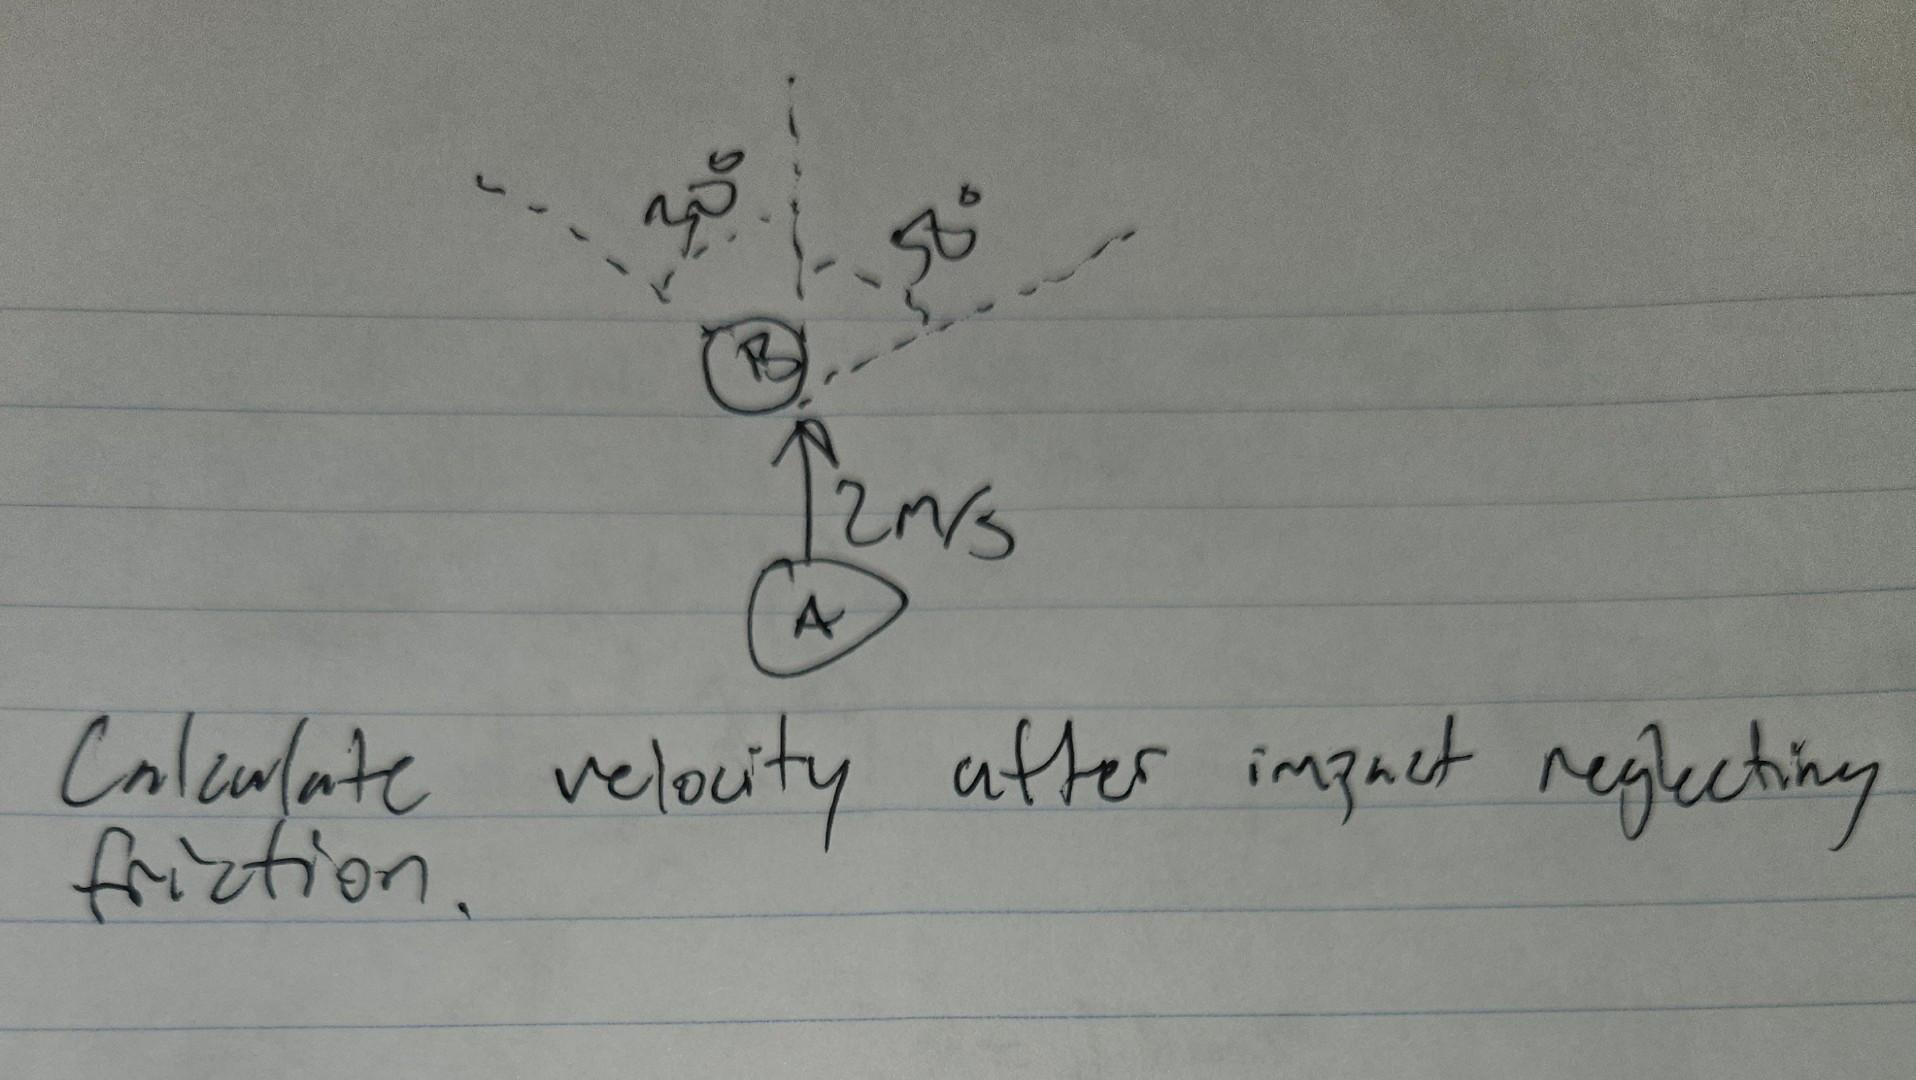 40°
50°
B
2m/s
A
Calculate velocity after impact neglecting
friction.